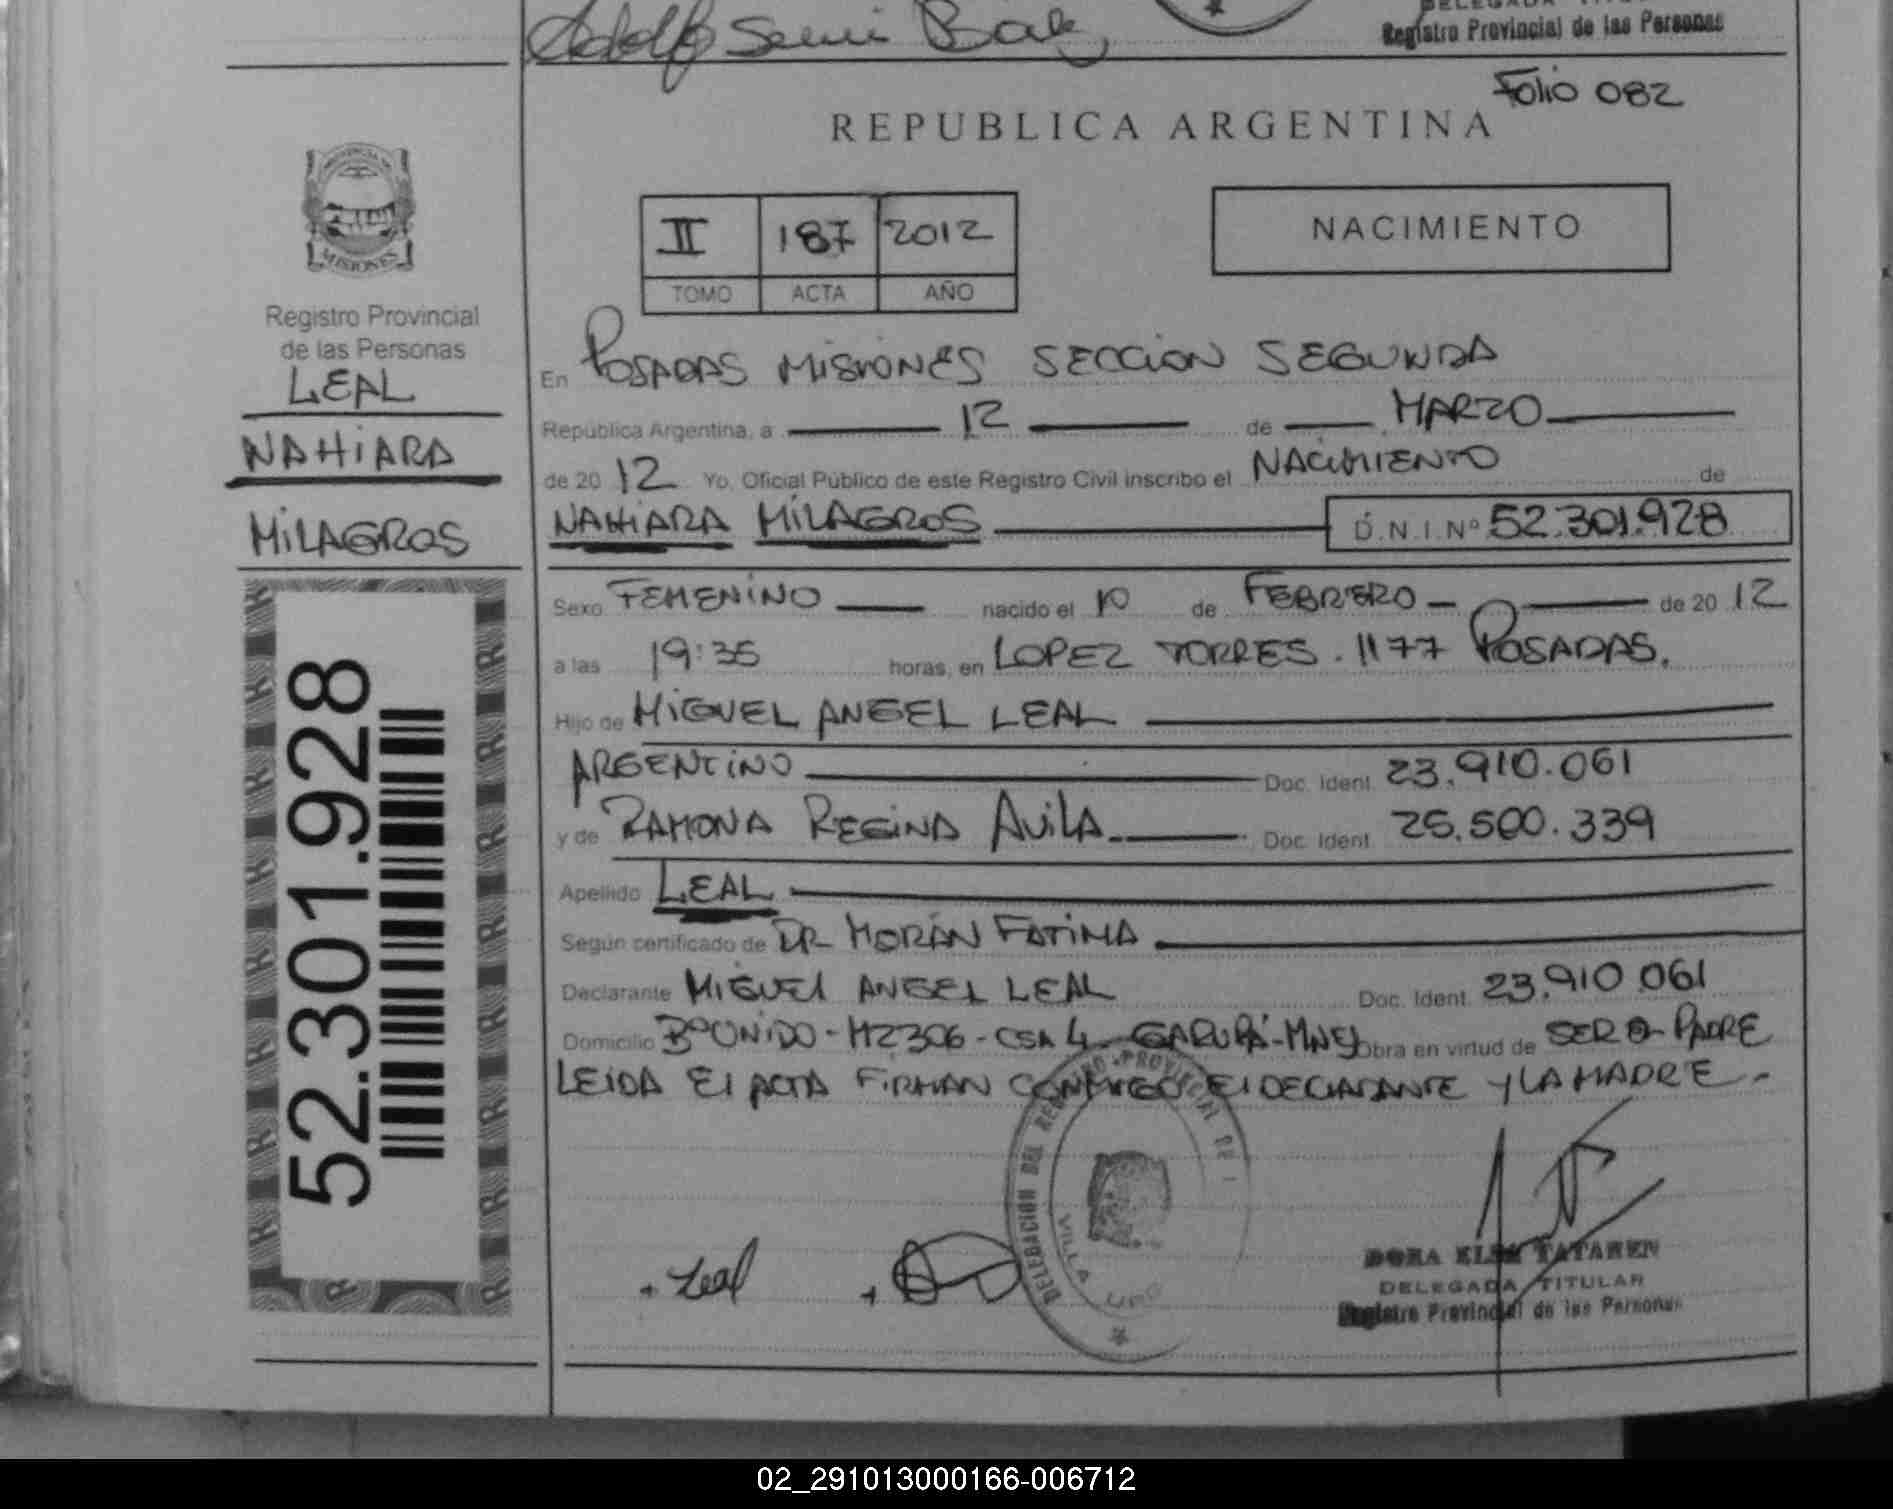 Adolfo
DELEGADA TITULAR
Registro Provincial de las Personas
Folio 082
REPUBLICA ARGENTINA
PROVINCIA DE
MISIONES
Registro Provincial
de las Personas
LEAL
NAHIARA
MILAGROS
52.301.928
II 187 2012
TOMO ACTA AÑO
NACIMIENTO
En POSADAS MISIONES SECCION SEGUNDA
República Argentina, a 12 de MARZO
de 20 12 Yo, Oficial Público de este Registro Civil inscribo el NACIMIENTO de
NAHIARA MILAGROS D.N.I.Nº 52.301.928
Sexo FEMENINO nacido el 10 de FEBRERO de 20 12
a las 19:35 horas, en LOPEZ TORRES. 1177 POSADAS.
Hijo de MIGUEL ANGEL LEAL
ARGENTINO Doc. Ident. 23.910.061
y de RAMONA REGINA AVILA Doc. Ident. 25.500.339
Apellido LEAL
Según certificado de DR MORAN FATIMA
Declarante MIGUEL ANGEL LEAL Doc. Ident. 23.910 061
Domicilio Bº UNIDO - MZ 306 - CSA 4 - GARUPÁ - MNES Obra en virtud de SER PADRE
LEIDA El ACTA FIRMAN CONMIGO El DECLARANTE Y LA MADRE.-
DELEGACION DEL REGISTRO PROVINCIAL DE
VILLA
Leal
DORA ELSA TATAREN
DELEGADA TITULAR
Registro Provincial de las Personas
02_291013000166-006712